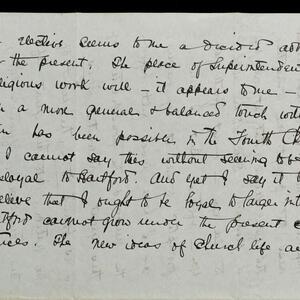 elective seems to me a decided
the present. The place of Superintenden
ligious work will – it appears to me –
a more general & balanced touch wit
has been possible in the Fourth Ch
I cannot say this without seeming to be
sloyal to Hartford. And yet I say it b
elieve that I ought to be loyal to larger int
tford cannot grow under the present
nces. The new ideas of Church life an